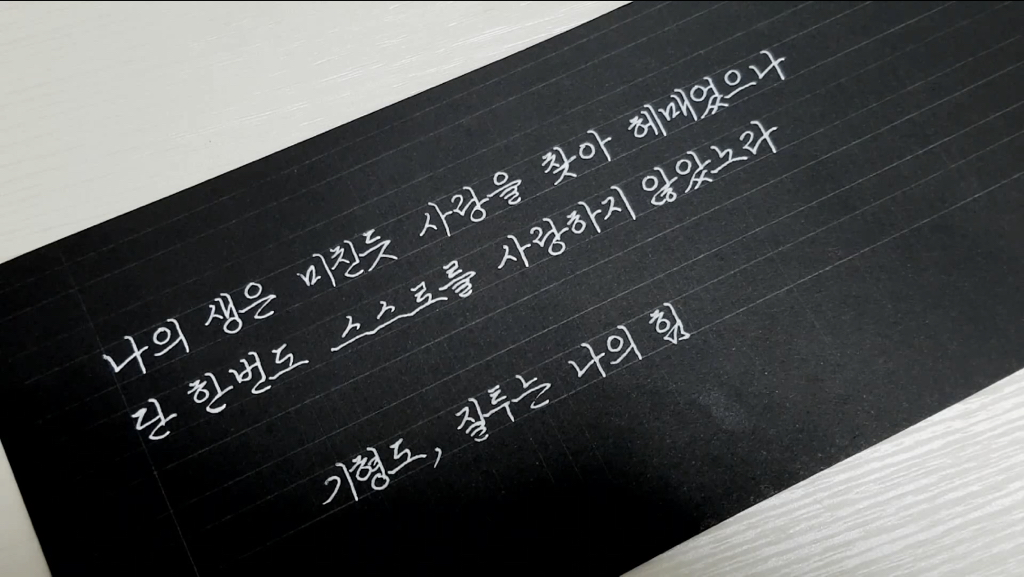 나의 생은 미친듯 사랑을 찾아 헤매었으나
단 한번도 스스로를 사랑하지 않았노라
기형도, 질투는 나의 힘